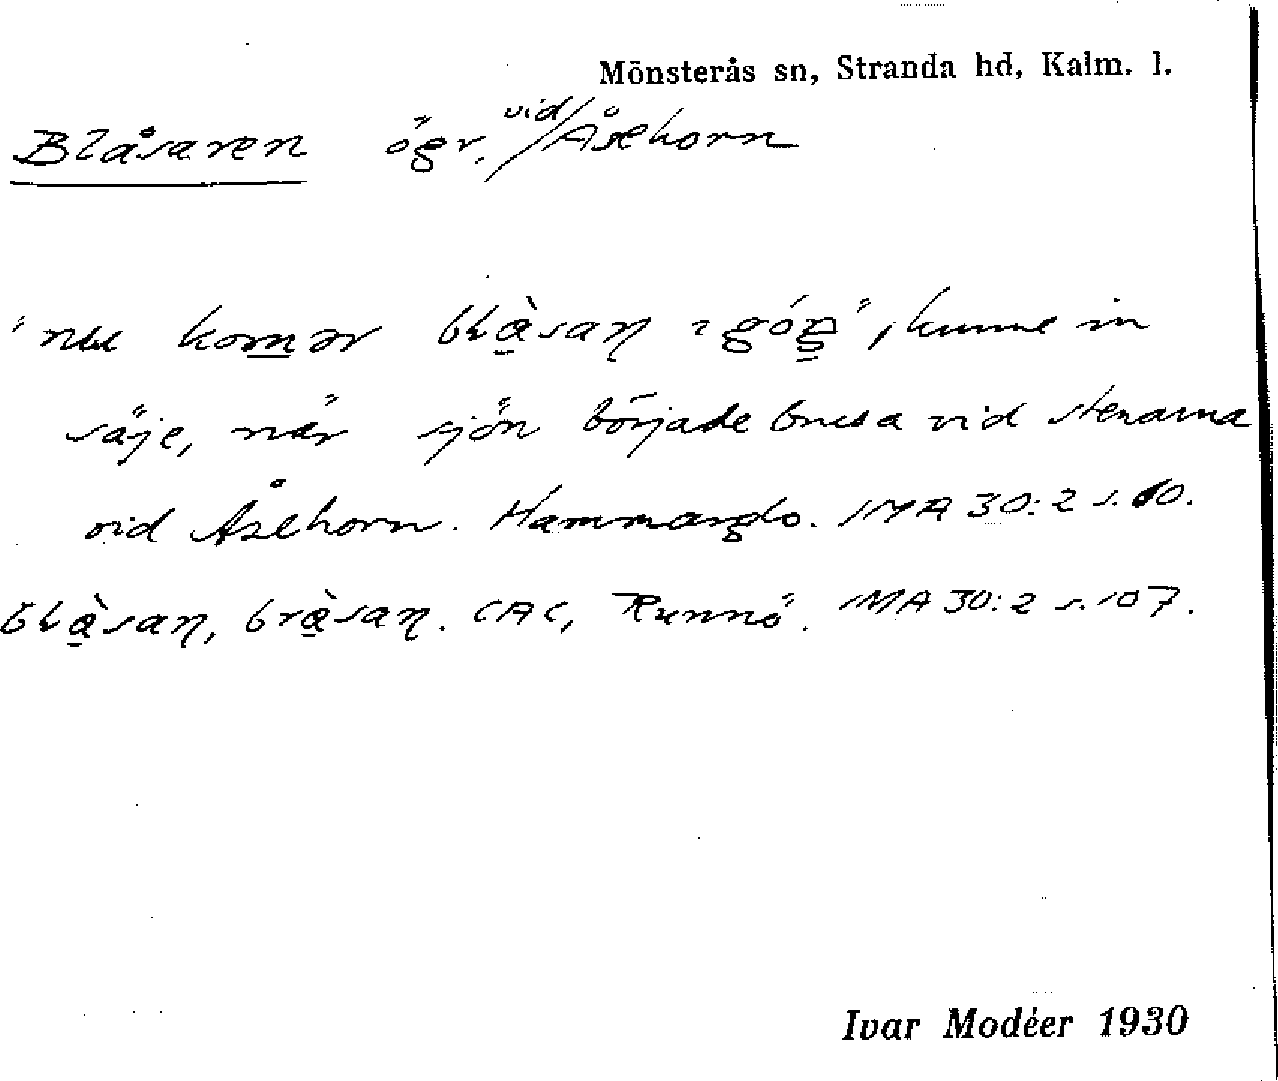 Mönsterås sn, Stranda hd, Kalm. l.
Blåsaren ögr. vid Åsehorn
"nu komər blạ̀san i góŋ", kunne in
säje, när sjön började brusa vid stenarna
vid Åsehorn. Hammarglo. IMA 30:2 s. 10.
blạ̀san, brạ̀san. CAC, Runnö. IMA 30:2 s. 107.
Ivar Modéer 1930